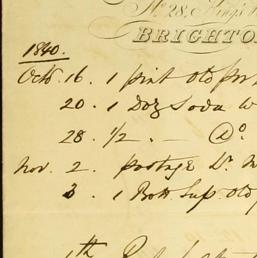 No. 28, King's
BRIGHTO
1840.
Octb. 16. 1 pint Old Po
20. 1 Doz Soda W
28. 1/2 . — Do.
Nov. 2. postage
3. 1 Bott Sup. Old